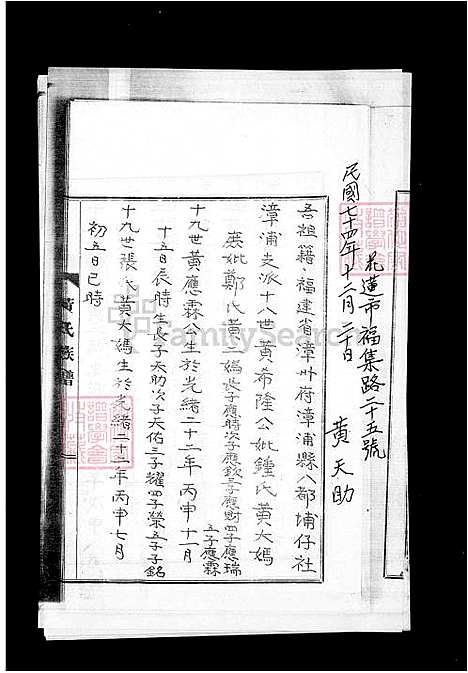 花蓮市福集路二十五號
民國七十四年十二月二十日
黄天助
吾祖籍、福建省漳州府漳浦縣八都埔仔社
漳浦支派十八世黄希隆公妣鍾氏黄大媽
庶妣鄭氏黄二媽長子應時次子應欽三子應財四子應瑞
五子應霖
十九世黄應霖公生於光緒二十二年丙申十一月
十五日辰時生長子天助次子天佑三子耀四子榮五子子銘
十九世張氏黄大媽生於光緒二十二年丙申七月
初五日巳時
黄氏族譜
FamilySearch